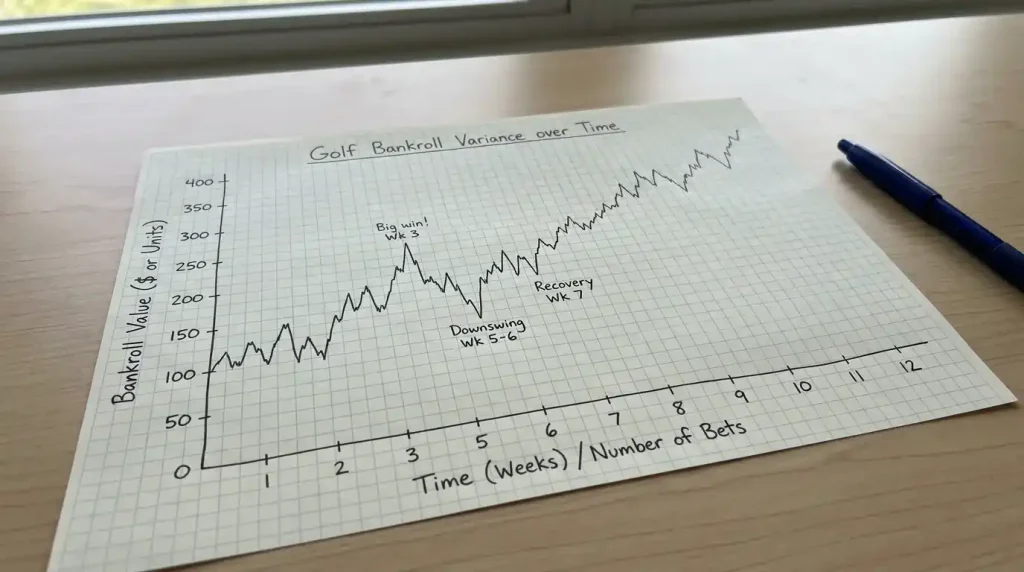 Golf Bankroll Variance over Time
400
350
300
250
200
150
100
50
0
Bankroll Value ($ or Units)
Big win!
Wk 3
Downswing
Wk 5-6
Recovery
Wk 7
1 2 3 5 6 7 8 9 10 11 12
Time (Weeks) / Number of Bets